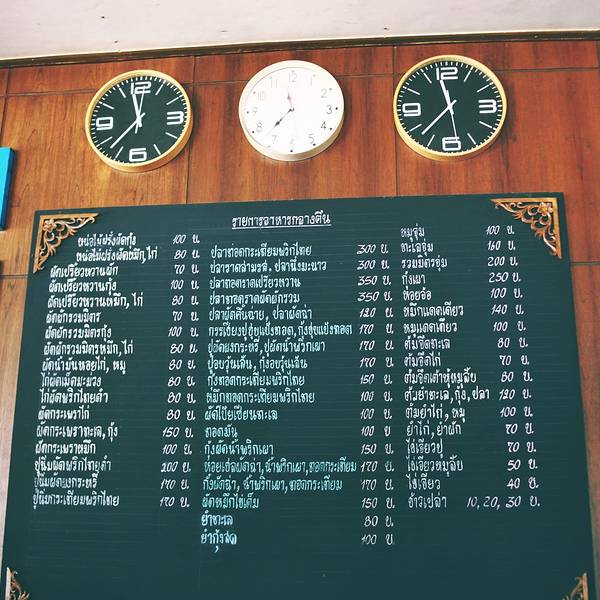 รายการอาหารกลางคืน
หน่อไม้ฝรั่งผัดกุ้ง 100 บ.
หน่อไม้ฝรั่งผัดหมึก, ไก่ 80 บ.
ผัดเปรี้ยวหวานผัก 70 บ.
ผัดเปรี้ยวหวานกุ้ง 100 บ.
ผัดเปรี้ยวหวานหมึก, ไก่ 80 บ.
ผัดผักรวมมิตร 70 บ.
ผัดผักรวมมิตรกุ้ง 100 บ.
ผัดผักรวมมิตรหมึก, ไก่ 80 บ.
ผัดน้ำมันหอยไก่, หมู 80 บ.
ไก่ผัดเม็ดมะม่วง 80 บ.
ไก่ผัดพริกไทยดำ 80 บ.
ผัดกระเพราไก่ 80 บ.
ผัดกระเพราทะเล, กุ้ง 150 บ.
ผัดกระเพราหมึก 100 บ.
ปูนิ่มผัดพริกไทยดำ 200 บ.
ปูนิ่มผัดผงกระหรี่ 170 บ.
ปูนิ่มกระเทียมพริกไทย 170 บ.
ปลาทอดกระเทียมพริกไทย 300 บ.
ปลาราดสามรส, ปลานึ่งมะนาว 300 บ.
ปลาทอดราดเปรี้ยวหวาน 350 บ.
ปลาทอดราดผัดผักรวม 350 บ.
ปลาผัดคื่นฉ่าย, ปลาผัดฉ่า 120 บ.
170 บ.
ปูผัดผงกระหรี่, ปูผัดน้ำพริกเผา 170 บ.
ปูอบวุ้นเส้น, กุ้งอบวุ้นเส้น 170 บ.
กุ้งทอดกระเทียมพริกไทย 150 บ.
หมึกทอดกระเทียมพริกไทย 100 บ.
ผัดโป๊ยเซียนทะเล 100 บ.
ทอดมัน 100 บ.
กุ้งผัดน้ำพริกเผา 150 บ.
หอยเชลล์ผัดฉ่า, น้ำพริกเผา, ทอดกระเทียม 170 บ.
กั้งผัดฉ่า, น้ำพริกเผา, ทอดกระเทียม 170 บ.
ผัดหมึกไข่เค็ม 150 บ.
ยำทะเล 80 บ.
ยำกุ้งสด 100 บ.
หมูจุ่ม 100 บ.
ทะเลจุ่ม 150 บ.
รวมมิตรจุ่ม 200 บ.
กุ้งเผา 250 บ.
หอยจ๊อ 100 บ.
หมึกแดดเดียว 140 บ.
หมูแดดเดียว 100 บ.
ต้มจืดทะเล 80 บ.
ต้มจืดไก่ 70 บ.
ต้มจืดเต้าหู้หมูสับ 80 บ.
ต้มยำทะเล, กุ้ง, ปลา 120 บ.
ต้มยำไก่, หมู 100 บ.
ยำไก่, ยำผัก 70 บ.
ไข่เจียวปู 70 บ.
ไข่เจียวหมูสับ 50 บ.
ไข่เจียว 40 บ.
ข้าวเปล่า 10, 20, 30 บ.